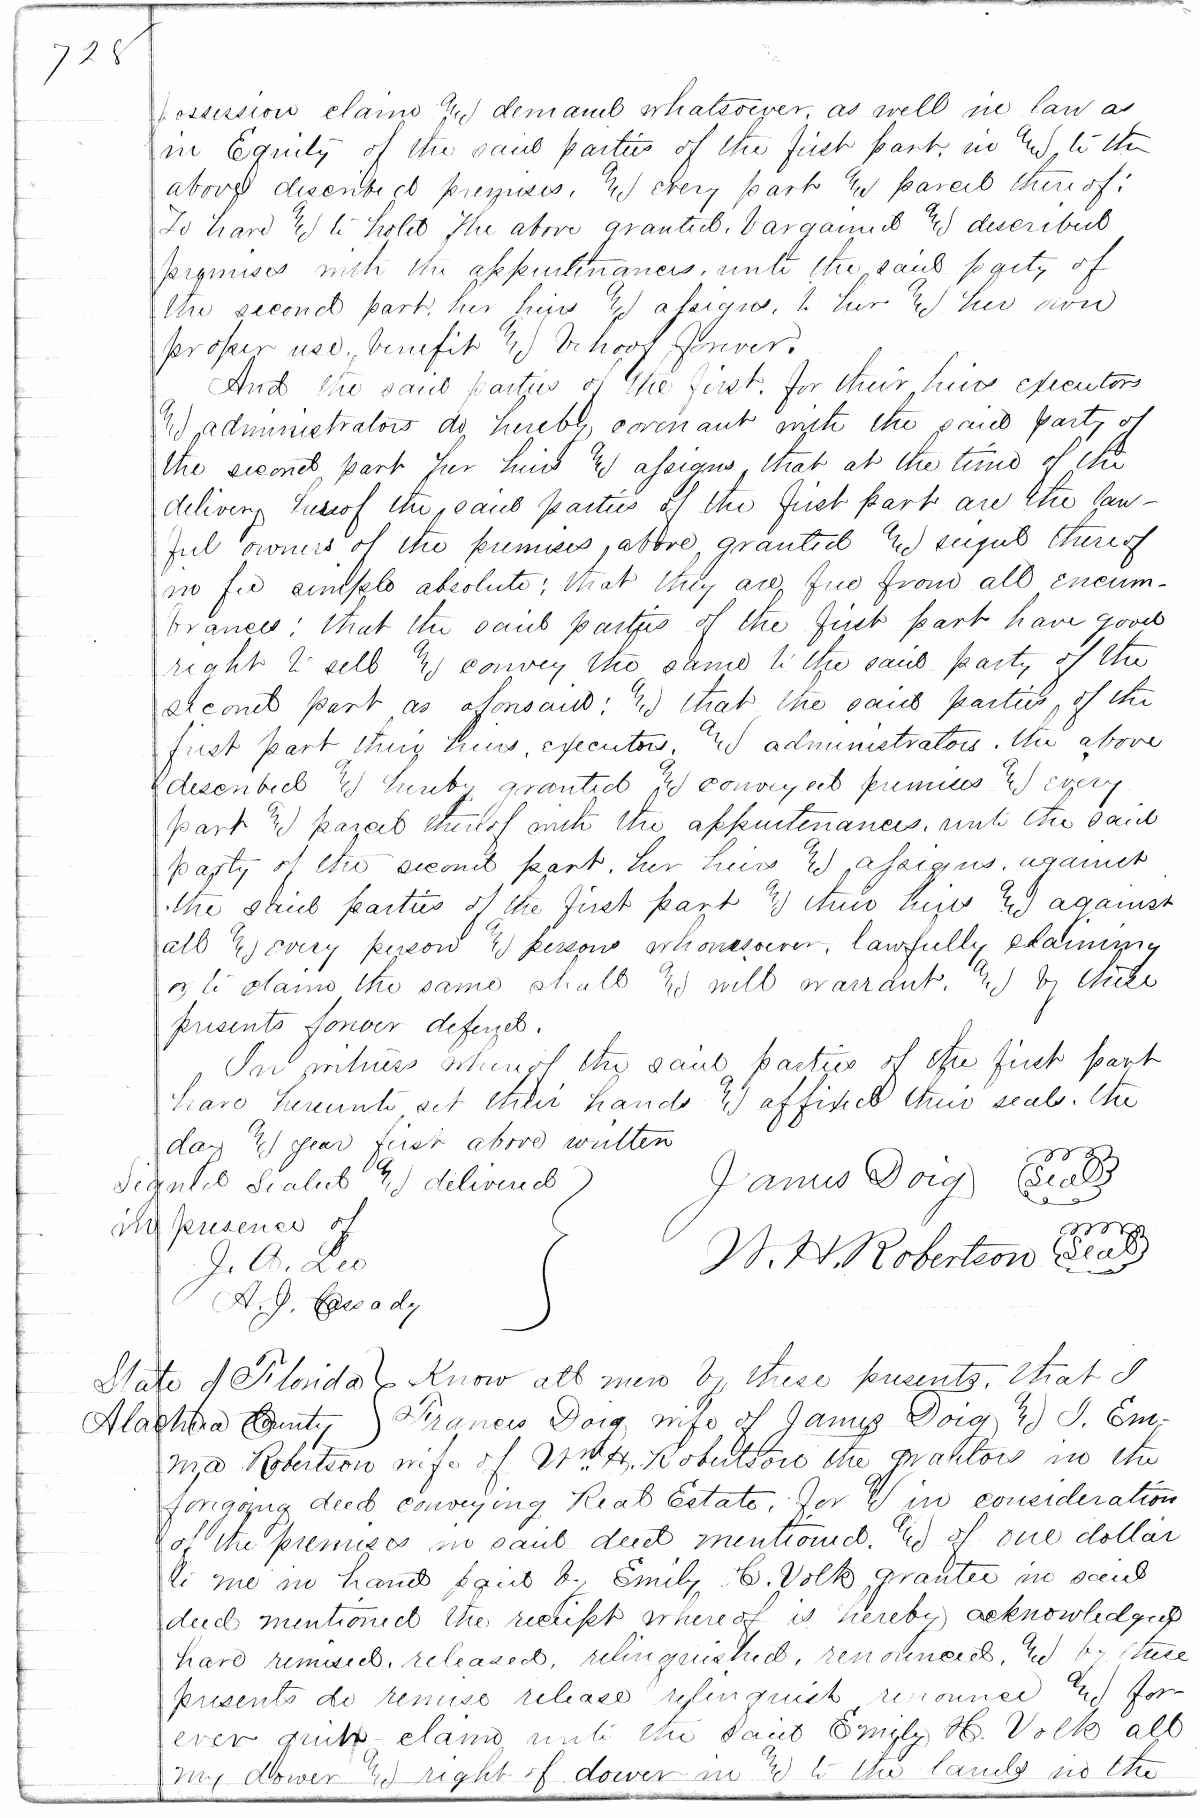 728
possession claim & demand whatsoever, as well in law as
in Equity of the said parties of the first part, in & to the
above described premises, & every part & parcel thereof:
To have & to hold the above granted, bargained & described
premises with the appurtenances, unto the said party of
the second part, her heirs & assigns, to her & her own
proper use, benefit & behoof forever.
And the said parties of the first, for their heirs executors
& administrators do hereby covenant with the said party of
the second part her heirs & assigns, that at the time of the
delivery hereof the said parties of the first part are the law-
ful owners of the premises above granted & seized thereof
in fee simple absolute; that they are free from all encum-
brances; that the said parties of the first part have good
right to sell & convey the same to the said party of the
second part as aforesaid; & that the said parties of the
first part their heirs, executors, & administrators, the above
described & hereby granted & conveyed premises & every
part & parcel thereof with the appurtenances, unto the said
party of the second part, her heirs & assigns, against
the said parties of the first part & their heirs & against
all & every person & persons whomsoever, lawfully claiming
or to claim the same shall & will warrant, & by these
presents forever defend.
In witness whereof the said parties of the first part
have hereunto set their hands & affixed their seals, the
day & year first above written
Signed Sealed & delivered
in presence of
J. A. Lee
A. J. Cassady
James Doig Seal
W. H. Robertson Seal
State of Florida } Know all men by these presents, that I
Alachua County } Frances Doig wife of James Doig & I. Em-
ma Robertson wife of Wm. H. Robertson the grantors in the
foregoing deed conveying Real Estate, for & in consideration
of the premises in said deed mentioned, & of one dollar
to me in hand paid by Emily H. Volk grantee in said
deed mentioned the receipt whereof is hereby acknowledged
have remised, released, relinquished, renounced, & by these
presents do remise release relinquish renounce & for-
ever quit-claim unto the said Emily H. Volk all
my dower & right of dower in & to the lands in the